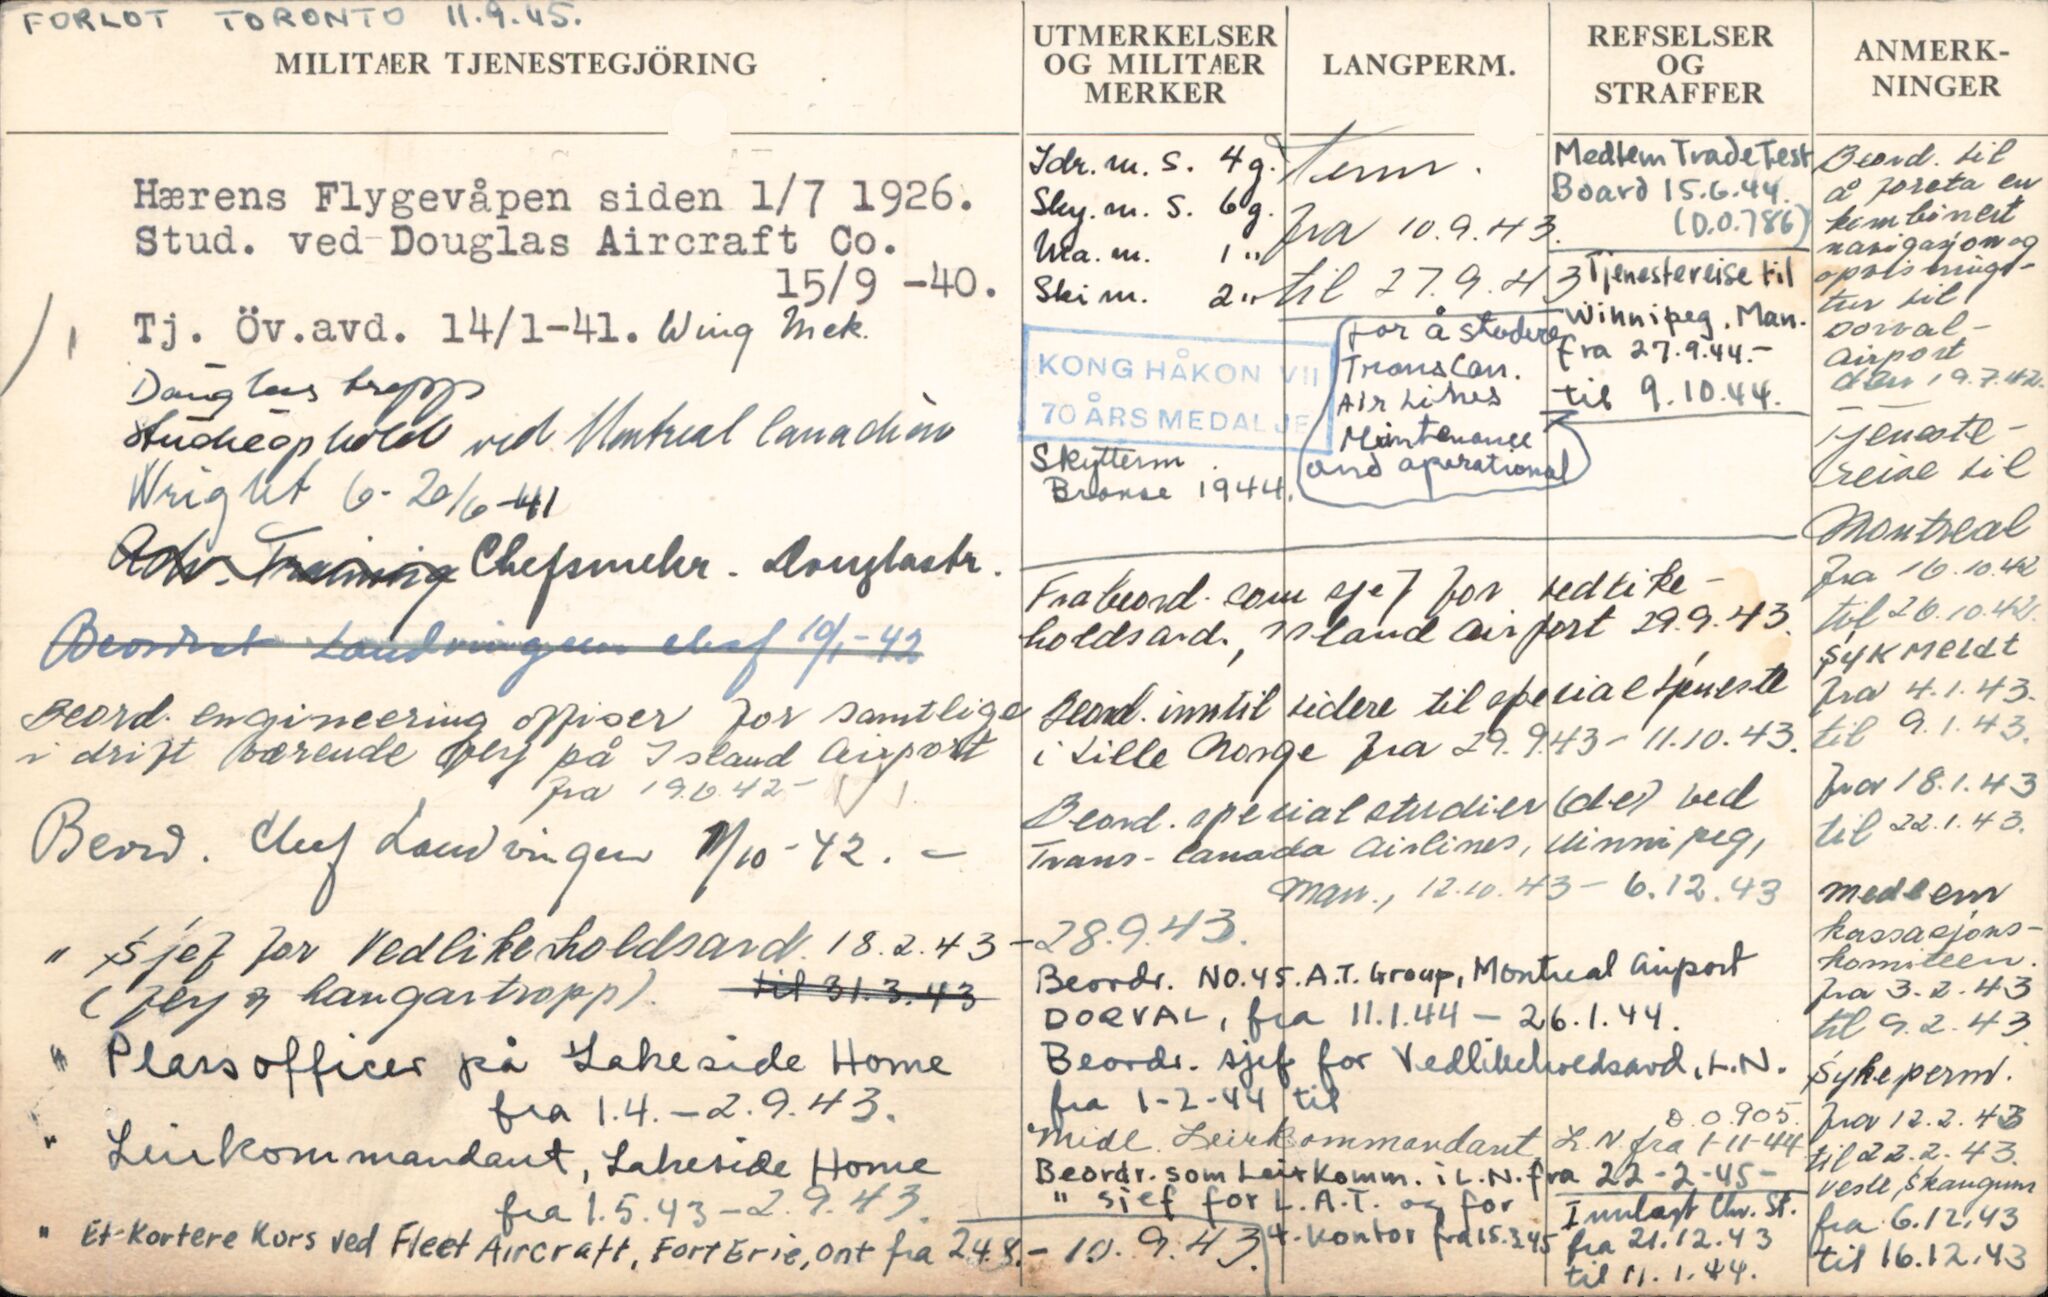 FORLOT TORONTO 11.9.45.
MILITÆR TJENESTEGJÖRING
Hærens Flygevåpen siden 1/7 1926.
Stud. ved Douglas Aircraft Co.
15/9 -40.
Tj. Öv.avd. 14/1-41. Wing Mek.
Douglas tropp
Studieophold ved Montreal Canadian
Wright 6-20/6-41
Adv. Training Chefsmekr. Douglastr.
Beordret Landvingen chef 10/1-42
Beord. engineering offiser for samtlige
i drift værende fly på Island Airport
fra 19.6.42-
Beord. Chef Landvingen 1/10-42. -
" Sjef for Vedlikeholdsavd. 18.2.43 - 28.9.43.
(fly & hangartropp). til 31.3.43
" Plassofficer på Lakeside Home
fra 1.4. - 2.9.43.
" Leirkommandant, Lakeside Home
fra 1.5.43 - 2.9.43.
" Et Kortere Kurs ved Fleet Aircraft, Fort Erie, Ont fra 24.8. - 10.9.43.
UTMERKELSER
OG MILITÆR
MERKER
Idr. m. S. 4 g.
Sky. m. S. 6 g.
Ma. m. 1 "
Ski m. 2 "
KONG HÅKON VII
70 ÅRS MEDALJE
Skytterm.
Bronse 1944.
LANGPERM.
Perm.
fra 10.9.43.
til 27.9.43
for å studere
TransCan.
Air Lines
Maintenance
and operational
REFSELSER
OG
STRAFFER
Medlem Trade Test
Board 15.6.44.
(D.O.786)
Tjenestereise til
Winnipeg, Man.
fra 27.9.44.-
til 9.10.44.
Frabeord. som sjef for vedlike-
holdsavd., Island Airport 29.9.43.
Beord. inntil videre til specialtjeneste
i Lille Norge fra 29.9.43 - 11.10.43.
Beord. specialstudier (de) ved
Trans-Canada Airlines, Winnipeg,
Man., 12.10.43 - 6.12.43
Beordr. No. 45. A.T. Group, Montreal Airport
DORVAL, fra 11.1.44 - 26.1.44.
Beordr. sjef for Vedlikeholdsavd, L.N.
fra 1-2-44 til
D.O.905.
Midl. Leirkommandant L.N. fra 1-11-44
Beordr. som Leirkomm. i L.N. fra 22-2-45-
" sjef for L.A.T. og for
t. kontor fra 15.3.45
Innlagt Chr. St.
fra 21.12.43
til 11.1.44.
ANMERK-
NINGER
Beord. til
å foreta en
kombinert
navigasjon og
opvisnings-
tur til
Dorval-
Airport
den 19.7.42.
Tjeneste-
reise til
Montreal
fra 16.10.42
til 26.10.42.
Sykmeldt
fra 4.1.43.
til 9.1.43.
fra 18.1.43
til 22.1.43.
Medlem
kassasjons-
komiteen.
fra 3.2.43
til 9.2.43
Sykeperm.
fra 12.2.43
til 22.2.43.
Vesle Skaugum
fra 6.12.43
til 16.12.43